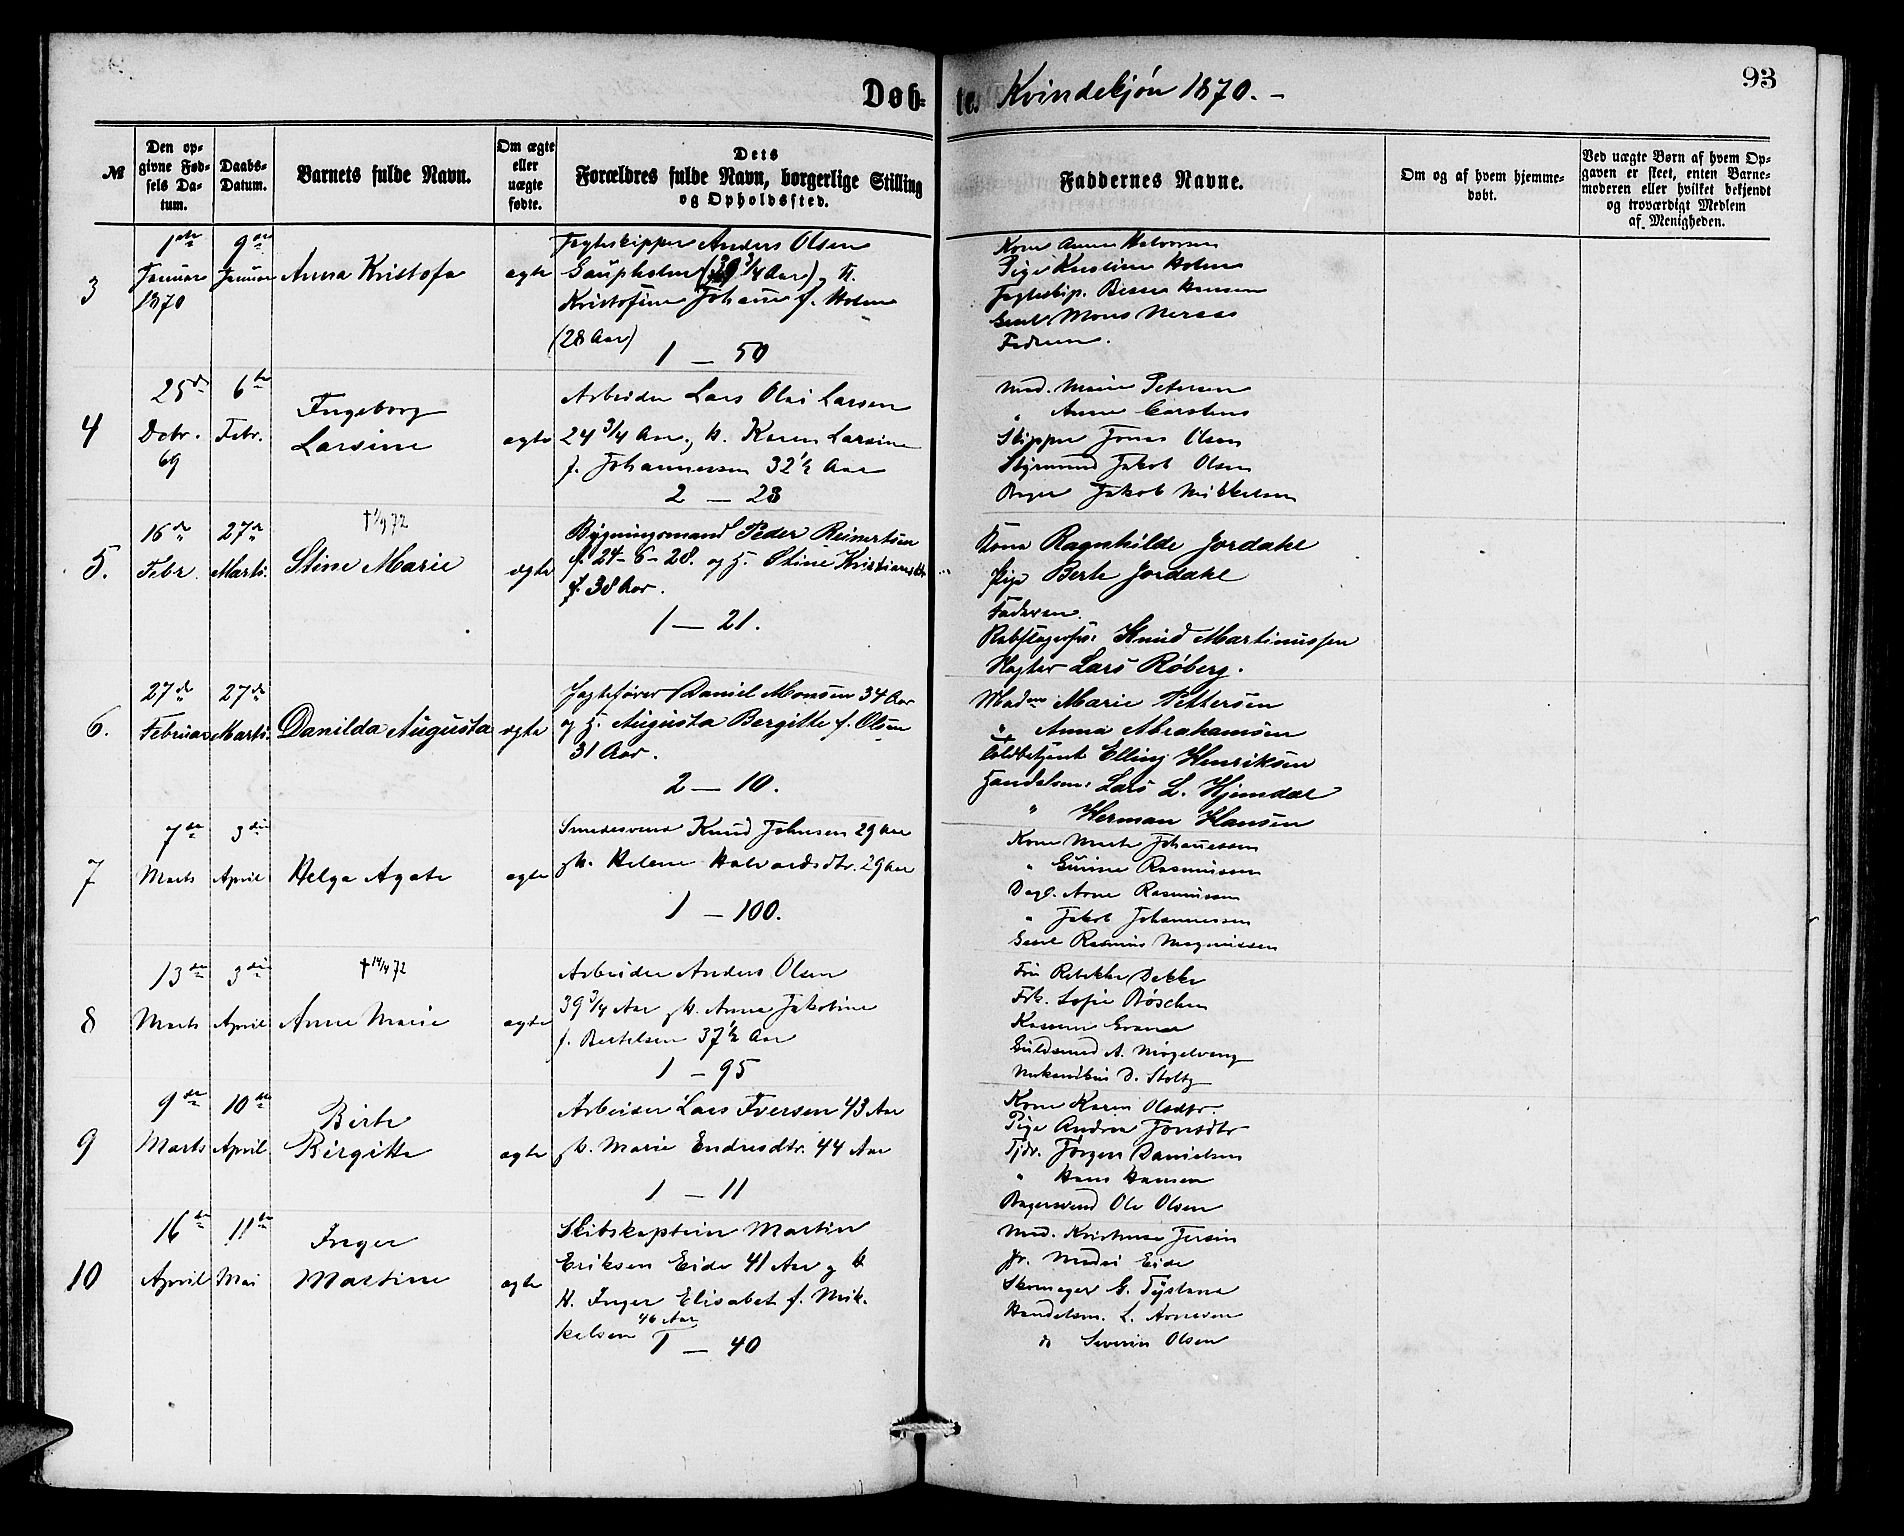 93
Døb-te. Kvindekjön 1870.-
№
Den op-
givne Fød-
sels Da-
tum.
Daabs-
Datum.
Barnets fulde Navn.
Om ægte
eller
uægte
fødte.
Dets
Forældres fulde Navn, borgerlige Stilling
og Opholdssted.
Faddernes Navne.
Om og af hvem hjemme-
døbt.
Ved uægte Børn af hvem Op-
gaven er skeet, enten Barne-
moderen eller hvilket bekjendt
og troværdigt Medlem
af Menigheden.
3
1ste
Januar
1870
9de
Januar
Anna Kristofa
ægte
Jagteskipper Anders Olsen
Gaupholm (39 3/4 Aar) H.
Kristofine Johanne f. Holm
(28 Aar)
1 — 50
Kone Anna Halvorsen
Pige Kirstine Holm
Jagteskip. Hansen
Mons
Faderen.
4
25de
Dcbr.
69
6te
Febr.
Ingeborg
Larsine
ægte
Arbeider Lars Olai Larsen
24 3/4 Aar, H. Karen Larsine
f. Johannessen 32 1/2 Aar
2 — 28
Mad. Marie Petersen
" Anne Carstens
Skipper Jonas Olsen
Styrmand Jakob Olsen
Bager Jakob Mikkelsen
5.
16de
Febr.
27de
Marts.
†1/9 72
Stine Marie
ægte
Bygningsmand Peder Reinertsen
f. 24-6-28. og H. Stine Kristiansdtr
f. 38 Aar.
1 — 21.
Kone Ragnhilde Jordahl
Pige Berte Jordahl
Faderen
Knud Martinussen
Slagter Lars Röberg.
6.
27de
Februar
27de
Marts.
Danilda Augusta
ægte
Jagtefører Daniel Monsen 34 Aar
og H. Augusta Bergitte f. Olsen
31 Aar.
2 — 10.
Madm Marie Pettersen
" Anna Abrahamsen
Toldbetjent Elling Henriksen
Handelsm: Lars L. Hjemdal
" Herman Hansen
7
7de
Marts
3die
April
Helga Agate
ægte
Smedesvend Knud Johnsen 29 Aar
H. Helene Halvardsdtr. 29 Aar
1 — 100.
Kone Marte Johannessen
" Gurine Rasmussen
Dagl. Arne Rasmussen
" Jakob Johannessen
Rasmus Magnussen
8
13de
Marts
3die
April
†14/4 72
Anne Marie
ægte
Arbeider Anders Olsen
39 3/4 Aar H. Anna Jakobine
f. Bertelsen 37 1/2 Aar
1 — 95
Fru Rebekka Dekke
Frk. Sofie Böschen
Guldsmed A. Mögelvang
Mekanikus D. Stoltz
9
9de
Marts
10de
April
Birte
Birgitte
ægte
Arbeider Lars Iversen 43 Aar
H. Marie Endresdtr. 44 Aar
1 — 11
Kone Karen Olsdtr.
Pige Andrea Jonsdtr
Tjdr. Jörgen Danielsen
" Hans Hansen
Bagersvend Ole Olsen
10
16de
April
11te
Mai
Inger
Martine
ægte
Skibskaptein Martin
Eriksen Eide 41 Aar
H. Inger Elisabet f. Mik-
kelsen 46 Aar
1 — 40
Mad.
Jfr. Eide
Skomager G.
Handelsm. L. Arnesen
do Severin Olsen